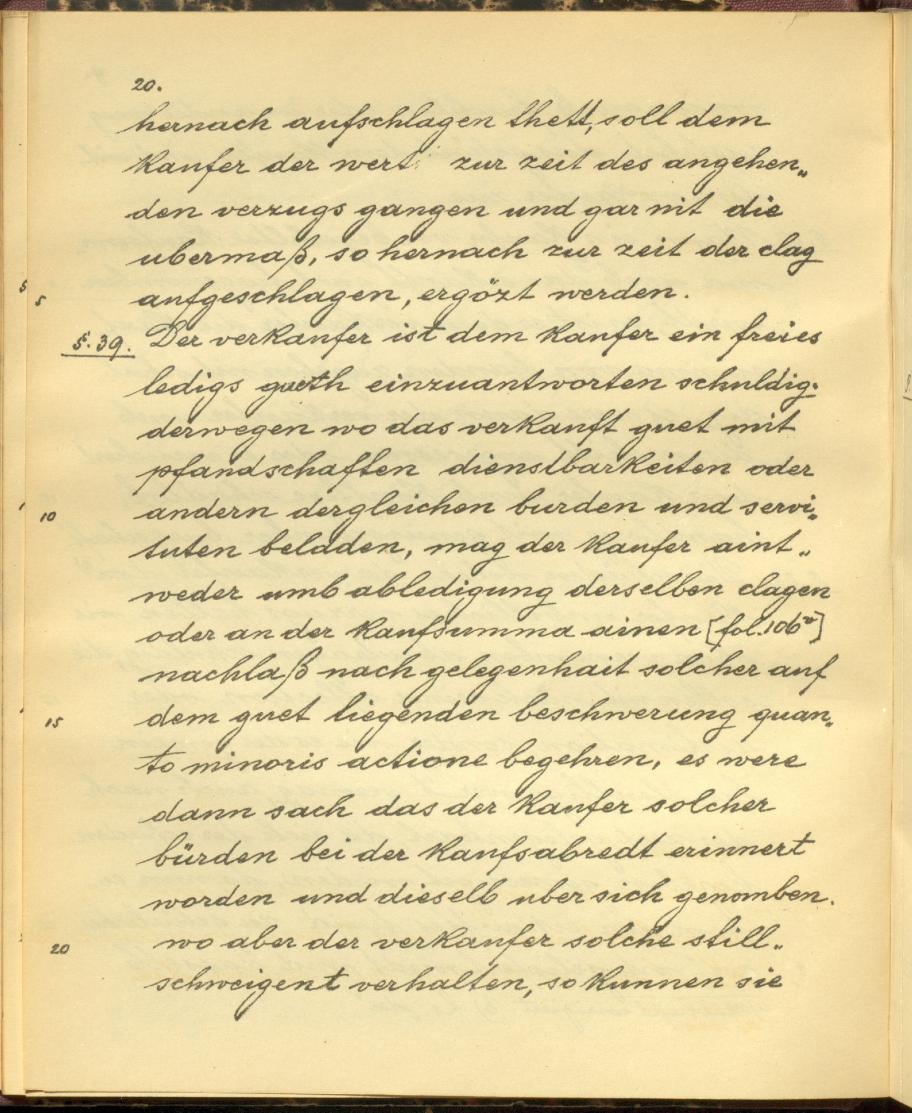 20.
hernach aufschlagen thett, soll dem
kaufer der wert zur zeit des angehen„
den verzugs gangen und gar nit die
ubermaß, so hernach zur zeit der clag
5 aufgeschlagen, ergözt werden.
§. 39. Der verkaufer ist dem kaufer ein freies
ledigs gueth einzuantworten schuldig.
derwegen wo das verkauft guet mit
pfandschaften dienstbarkeiten oder
10 andern dergleichen burden und servi„
tuten beladen, mag der kaufer aint„
weder umb abledigung derselben clagen
oder an der kaufsumma ainen [fol. 106v]
nachlaß nach gelegenhait solcher auf
15 dem guet liegenden beschwerung quan„
to minoris actione begehren, es were
dann sach das der kaufer solcher
bürden bei der kaufsabredt erinnert
worden und dieselb uber sich genomben.
20 wo aber der verkaufer solche still„
schweigent verhalten, so kunnen sie